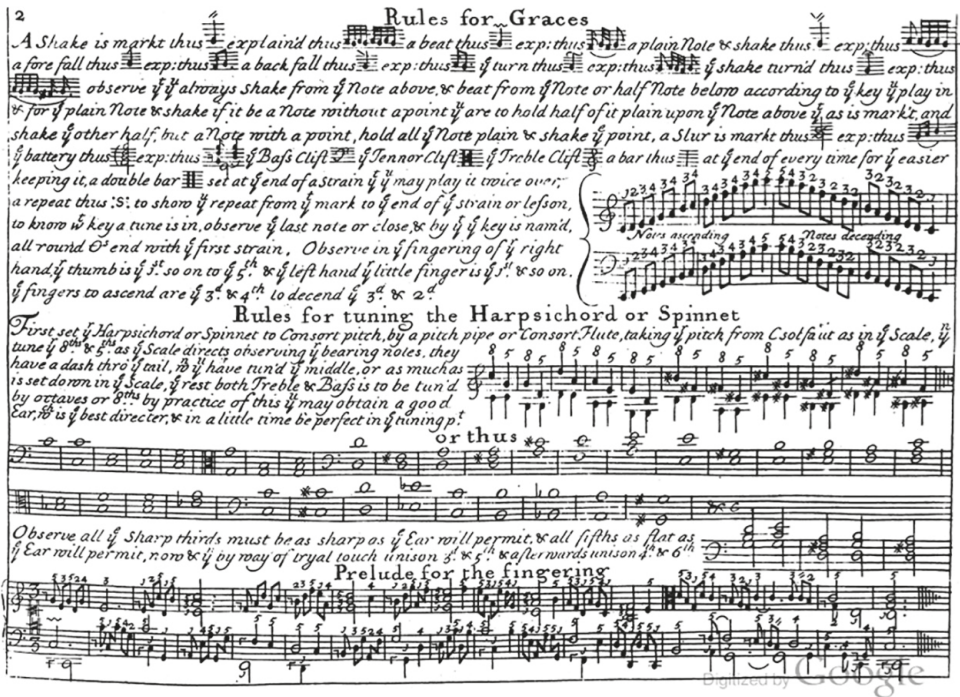 2
Rules for Graces
A Shake is markt thus explain'd thus a beat thus exp: thus a plain Note & shake thus exp: thus
a fore fall thus exp: thus a back fall thus exp: thus yͤ turn thus exp: thus yͤ shake turn'd thus exp: thus
observe yͭ yᵘ always shake from yͤ Note above, & beat from yͤ Note or half Note below according to yͤ key yᵘ play in
& for yͤ plain Note & shake if it be a Note without a point yᵘ are to hold half of it plain upon yͤ Note above yͭ, as is markt, and
shake yͤ other half, but a Note with a point, hold all yͤ Note plain & shake yͤ point, a Slur is markt thus exp: thus
yͤ battery thus exp: thus yͤ Bass Clift yͤ Tennor Clift yͤ Treble Clift a bar thus at yͤ end of every time for yͤ easier
keeping it, a double bar set at yͤ end of a strain yͭ yᵘ may play it twice over,
a repeat thus :S: to show yͤ repeat from yͤ mark to yͤ end of yͤ strain or lesson,
to know wͭ key a tune is in, observe yͤ last note or close, & by yͭ yͤ key is nam'd,
all round O's end with yͤ first strain. Observe in yͤ fingering of yͤ right
hand, yͤ thumb is yͤ 1ˢᵗ so on to yͤ 5ᵗʰ & yͤ left hand yͤ little finger is yͤ 1ˢᵗ & so on.
yͤ fingers to ascend are yͤ 3ᵈ & 4ᵗʰ to decend yͤ 3ᵈ & 2ᵈ
Notes ascending
Notes decending
Rules for tuning the Harpsichord or Spinnet
First set yͤ Harpsichord or Spinnet to Consort pitch, by a pitch pipe or Consort Flute, taking yͤ pitch from C solfa ut as in yͤ Scale, yⁿ
tune yͤ 8ᵗʰˢ & 5ᵗʰˢ as yͤ Scale directs observing yͤ bearing notes, they
have a dash thro yͤ tail, wⁿ yᵘ have tun'd yͤ middle, or as much as
is set down in yͤ Scale, yͤ rest both Treble & Bass is to be tun'd
by octaves or 8ᵗʰˢ by practice of this yᵘ may obtain a good
Ear, wᶜʰ is yͤ best directer, & in a little time be perfect in yͤ tuning pᵗ
or thus
Observe all yͤ Sharp thirds must be as sharp as yͤ Ear will permit, & all fifths as flat as
yͤ Ear will permit, now & yⁿ by way of tryal touch unison 3ᵈ & 5ᵗʰ & afterwards unison 4ᵗʰ & 6ᵗʰ
Prelude for the fingering
Digitized by Google